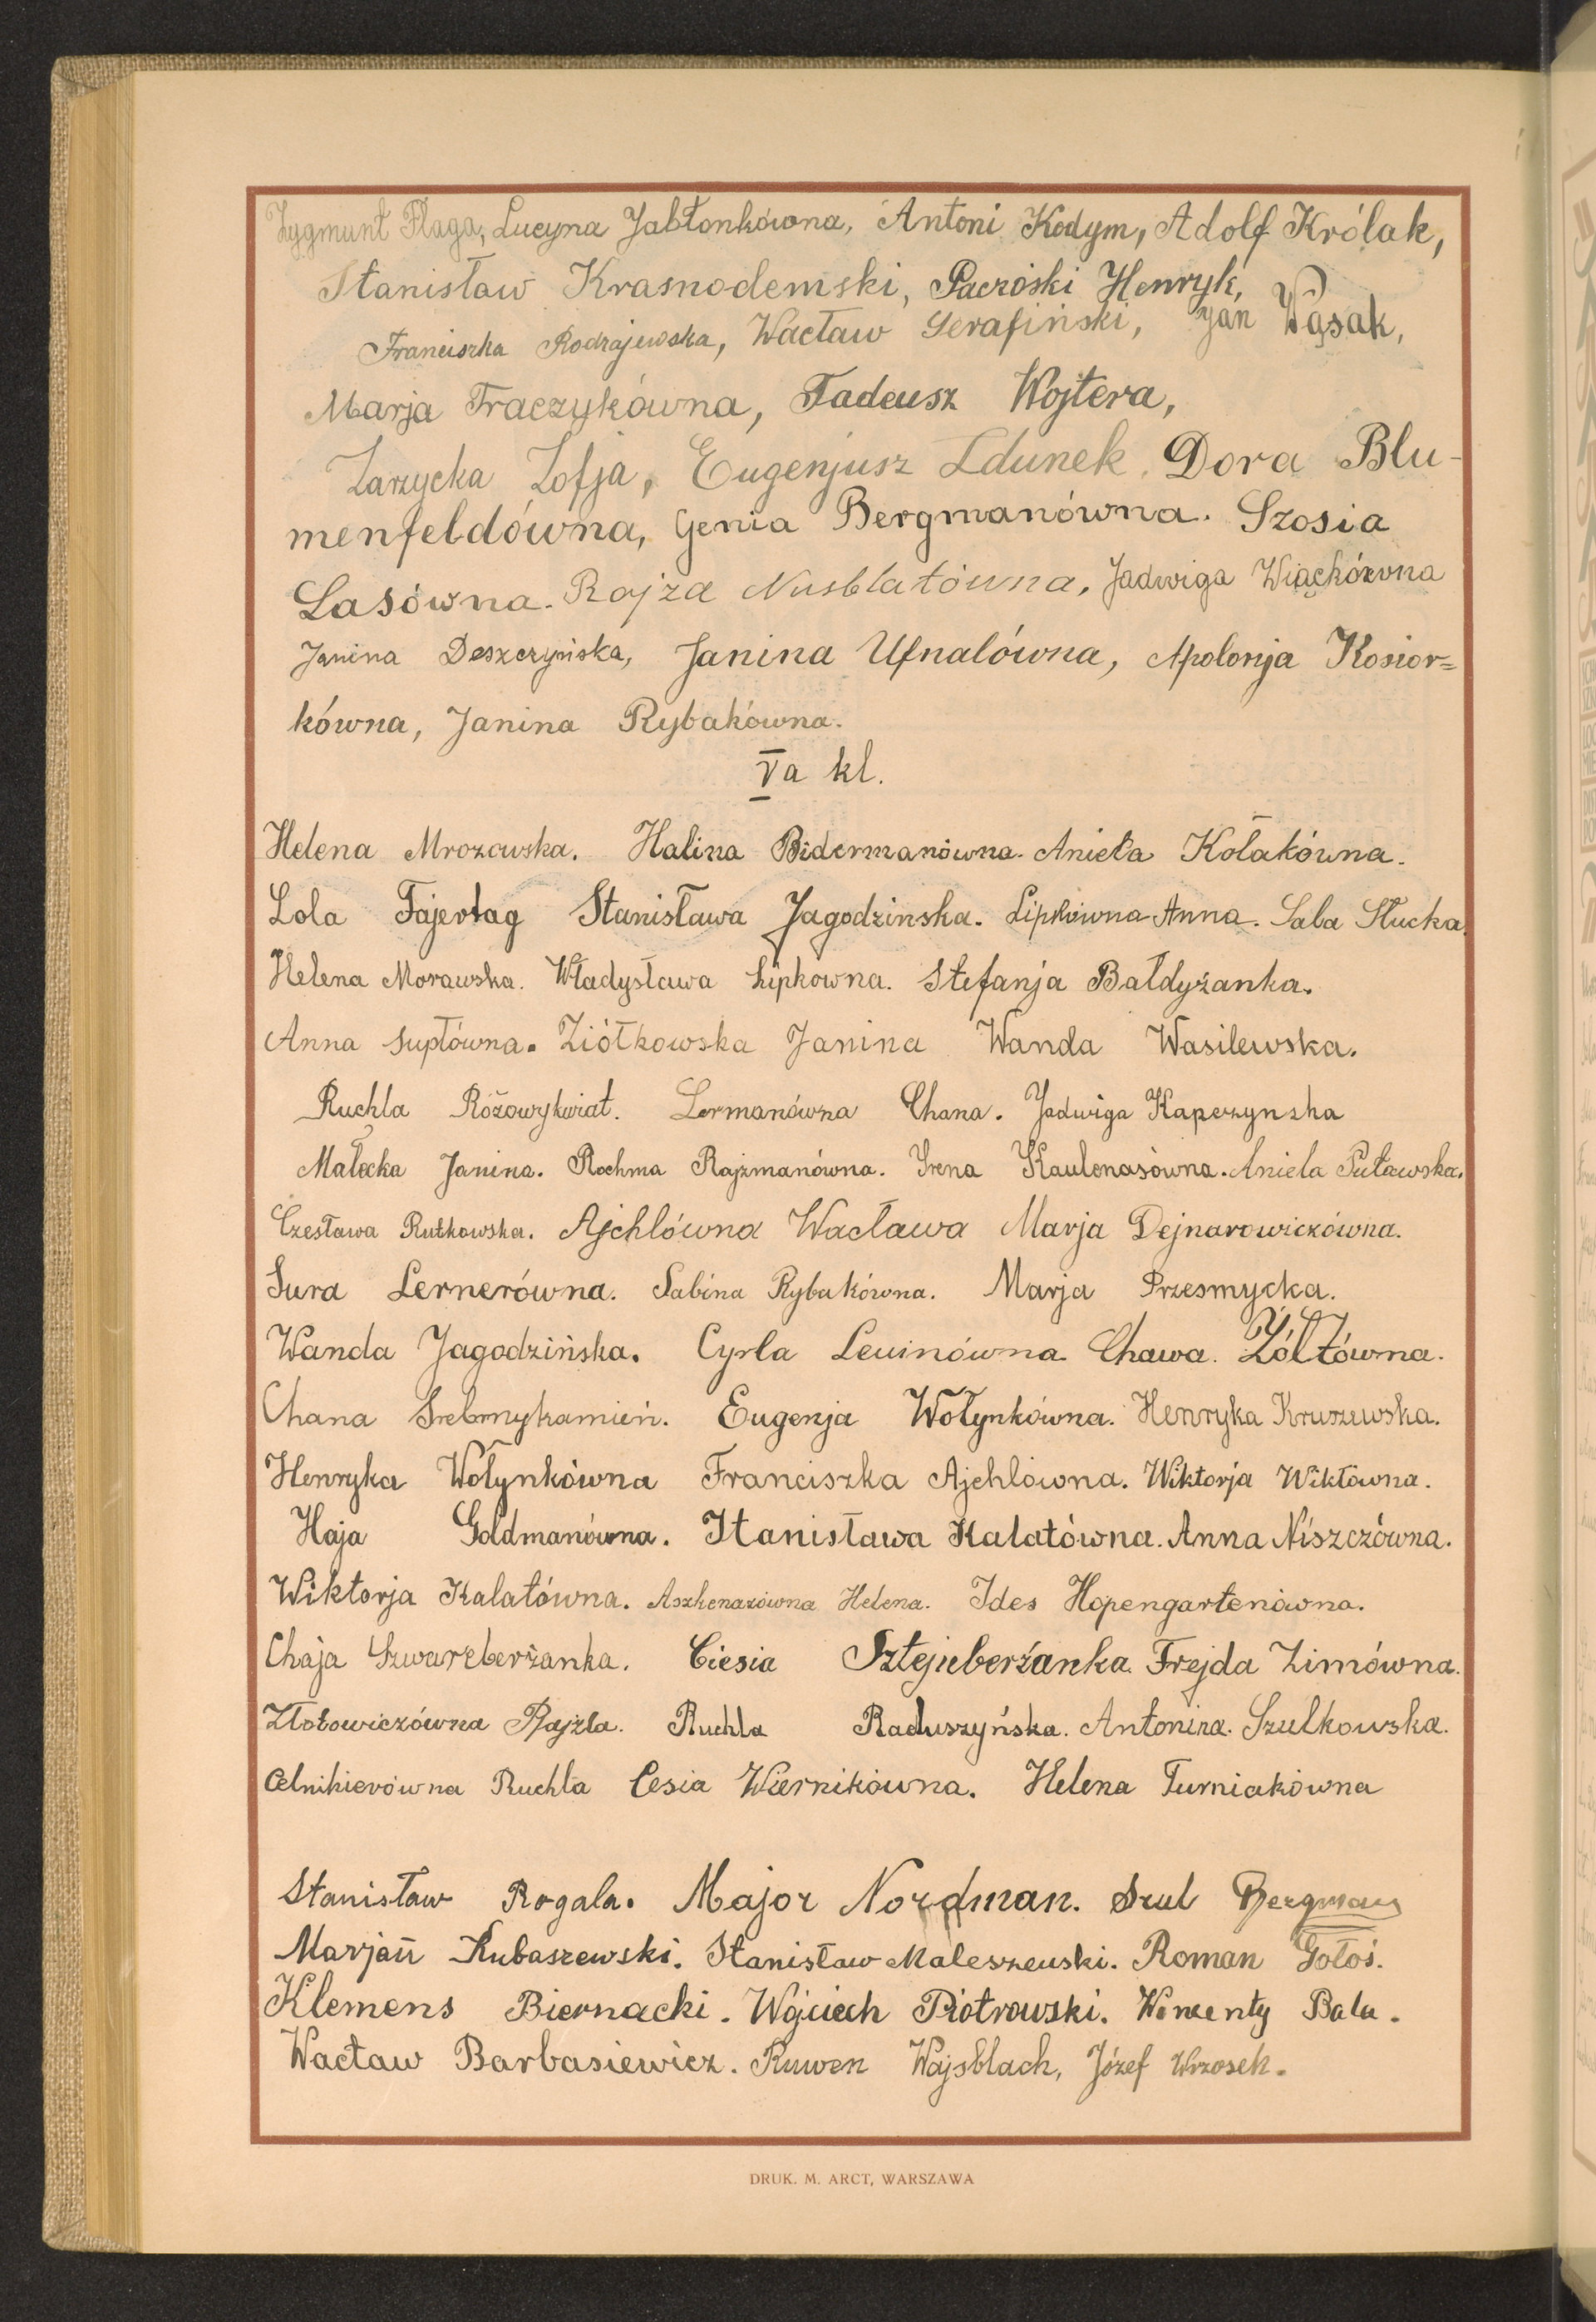 Zygmunt Flaga, Lucyna Jabłonkówna, Antoni Kodym, Adolf Królak,
Stanisław Krasnodemski, Paczóski Henryk,
Franciszka Rodzajewska, Wacław Serafiński, Jan Wąsak,
Marja Traczykówna, Tadeusz Wojtera,
Zarzycka Zofja, Eugenjusz Zdunek, Dora Blu-
menfeldówna, Genia Bergmanówna. Szosia
Lasówna. Rajza Nusblatówna, Jadwiga Wiąckówna
Janina Deszczyńska, Janina Ufnalówna, Apolonja Kosior=
kówna, Janina Rybakówna.
Va kl.
Helena Mrozowska. Halina Bidermanówna. Anieła Kołakówna.
Lola Fajertag Stanisława Jagodzinska. Lipkówna Anna. Saba Słucka.
Helena Morawska. Władysława Lipkowna. Stefanja Bałdyżanka.
Anna Supłówna. Ziółkowska Janina Wanda Wasilewska.
Ruchla Różowykwiat. Lermanówna Chana. Jadwiga Kapczynska
Małecka Janina. Rochma Rajzmanówna. Irena Kaulenasówna. Aniela Puławska.
Czesława Rutkowska. Ajchlówna Wacława Marja Dejnarowiczówna.
Sura Lernerówna. Sabina Rybakówna. Marja Przesmycka.
Wanda Jagodzińska. Cyrla Lewinówna Chawa. Żółtówna.
Chana Srebrnykamień. Eugenja Wołynkówna. Henryka Kruszewska.
Henryka Wołynkówna Franciszka Ajchlówna. Wiktorja Wiktówna.
Haja Goldmanówna. Stanisława Kalatówna. Anna Niszczówna.
Wiktorja Kalatówna. Aszkenazówna Helena. Ides Hopengartenówna.
Chaja Szwarzberżanka. Ciesia Sztejnberżanka. Frejda Zimówna.
Złotowiczówna Rajzla. Ruchla Raduszyńska. Antonina. Szulkowska.
Celnikierówna Ruchla Cesia Wiernikówna. Helena Turniakówna
Stanisław Rogala. Major Nordman. Szul Bergman
Marjan Kubaszewski. Stanisław Maleszewski. Roman Gołoś.
Klemens Biernacki. Wojciech Piotrowski. Wincenty Bala.
Wacław Barbasiewicz. Ruwen Wajsblach, Józef Wrzosek.
DRUK. M. ARCT, WARSZAWA